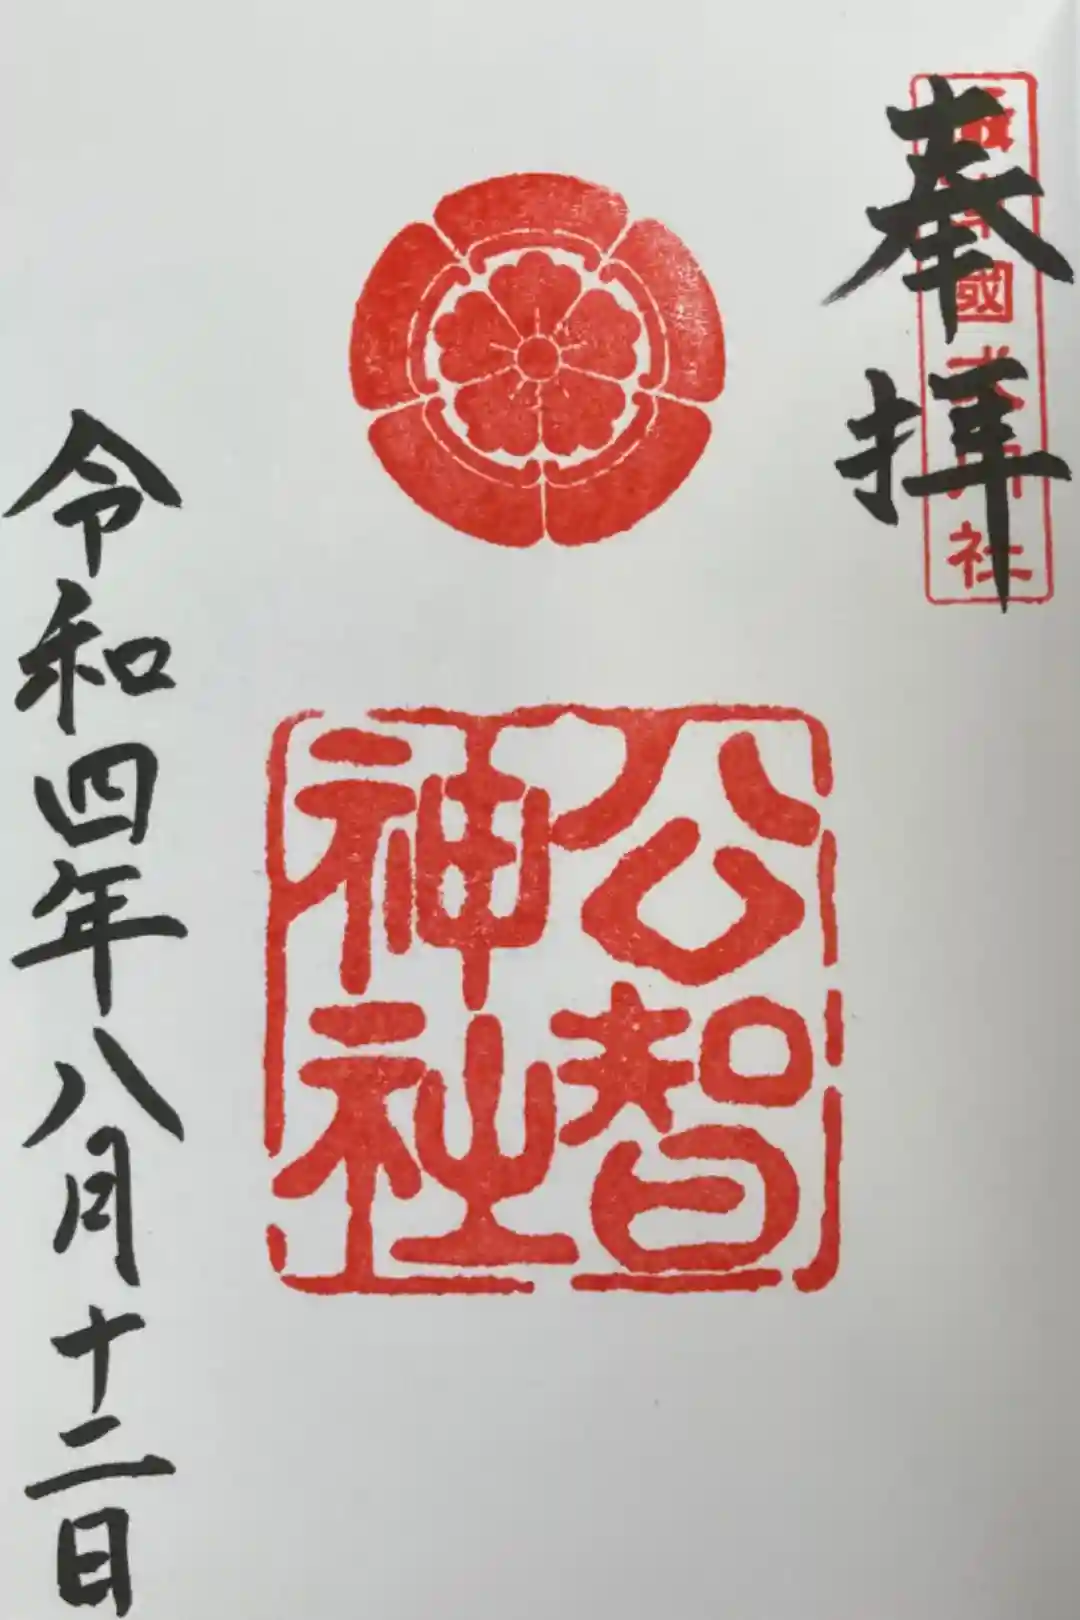 奉拝
國
社
公智
神社
令和四年八月十二日